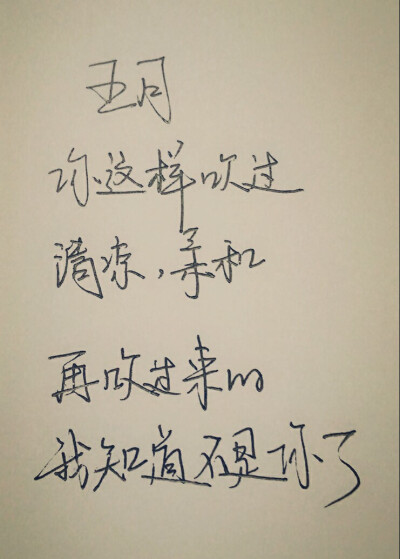 五月
你这样吹过
清凉，柔和
再吹过来的
我知道不是你了